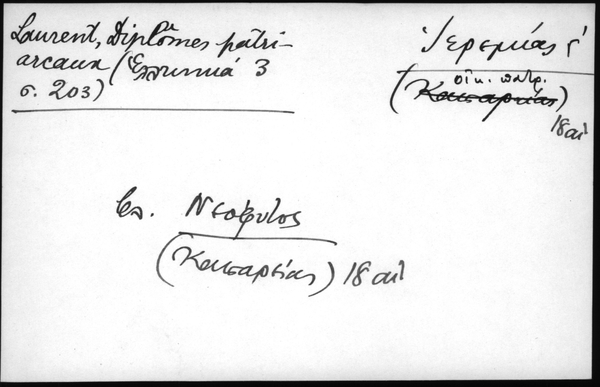 Laurent, Diplômes patri-
arcaux (Ἑλληνικά 3
σ. 203)
Ἱερεμίας γ΄
οἰκ. πατρ.
(Καισαρείας)
18 αἰ
βλ. Νεόφυτος
(Καισαρείας) 18 αἰ